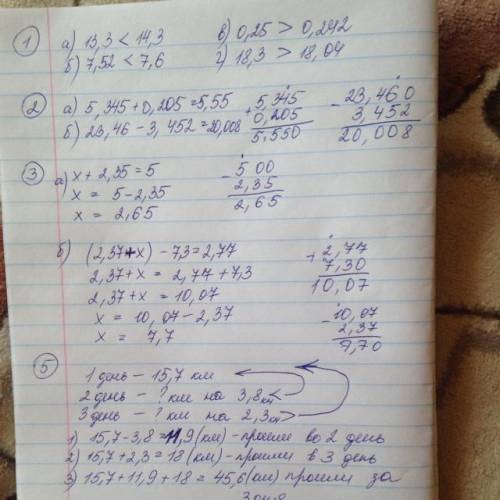 1 а) 13,3 < 14,3 в) 0,25 > 0,242
б) 7,52 < 7,6 г) 18,3 > 18,04
2 а) 5,345 + 0,205 = 5,55 + 5,345 - 23,460
б) 23,46 - 3,452 = 20,008 0,205 3,452
5,550 20,008
3 а) x + 2,35 = 5 - 5 00
x = 5 - 2,35 2,35
x = 2,65 2,65
б) (2,37 + x) - 7,3 = 2,77 + 2,77
2,37 + x = 2,77 + 7,3 7,30
2,37 + x = 10,07 10,07
x = 10,07 - 2,37 - 10,07
x = 7,7 2,37
9,70
5
1 день - 15,7 км
2 день - ? км на 3,8 км <
3 день - ? км на 2,3 км >
1) 15,7 - 3,8 = 11,9 (км) - прошли во 2 день
2) 15,7 + 2,3 = 18 (км) - прошли в 3 день
3) 15,7 + 11,9 + 18 = 45,6 (км) прошли за